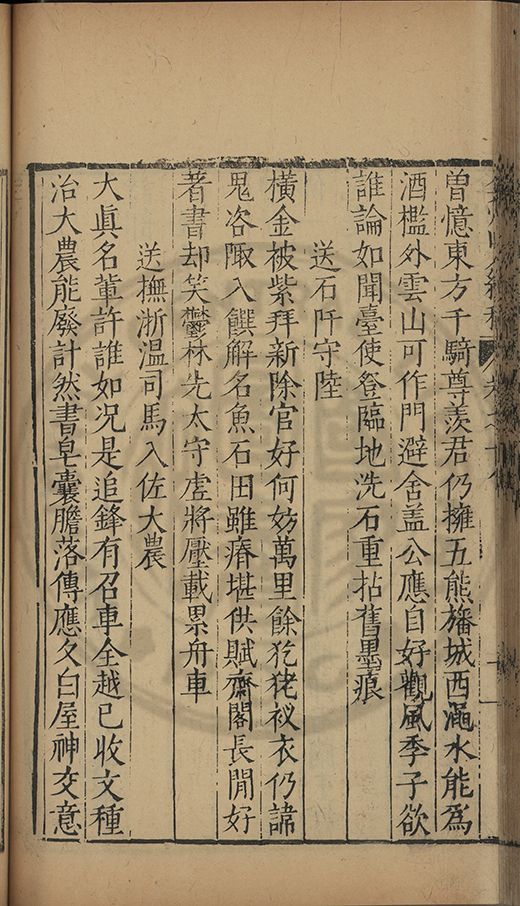 曽憶東方千騎尊羨君仍擁五熊旛城西澠水能爲
酒檻外雲山可作門避舍盖公應自好觀風季子欲
誰論如聞臺使登臨地洗石重拈舊墨痕
送石阡守陸
橫金被紫拜新除官好何妨萬里餘犵狫衩衣仍諱
鬼咨陬入饌解名魚石田雖瘠堪供賦齋閣長閒好
著書却笑鬱林先太守虗將壓載累舟車
送撫浙温司馬入佐大農
大眞名軰許誰如况是追鋒有召車全越已收文種
治大農能廢計然書皁囊膽落傳應久白屋神交意